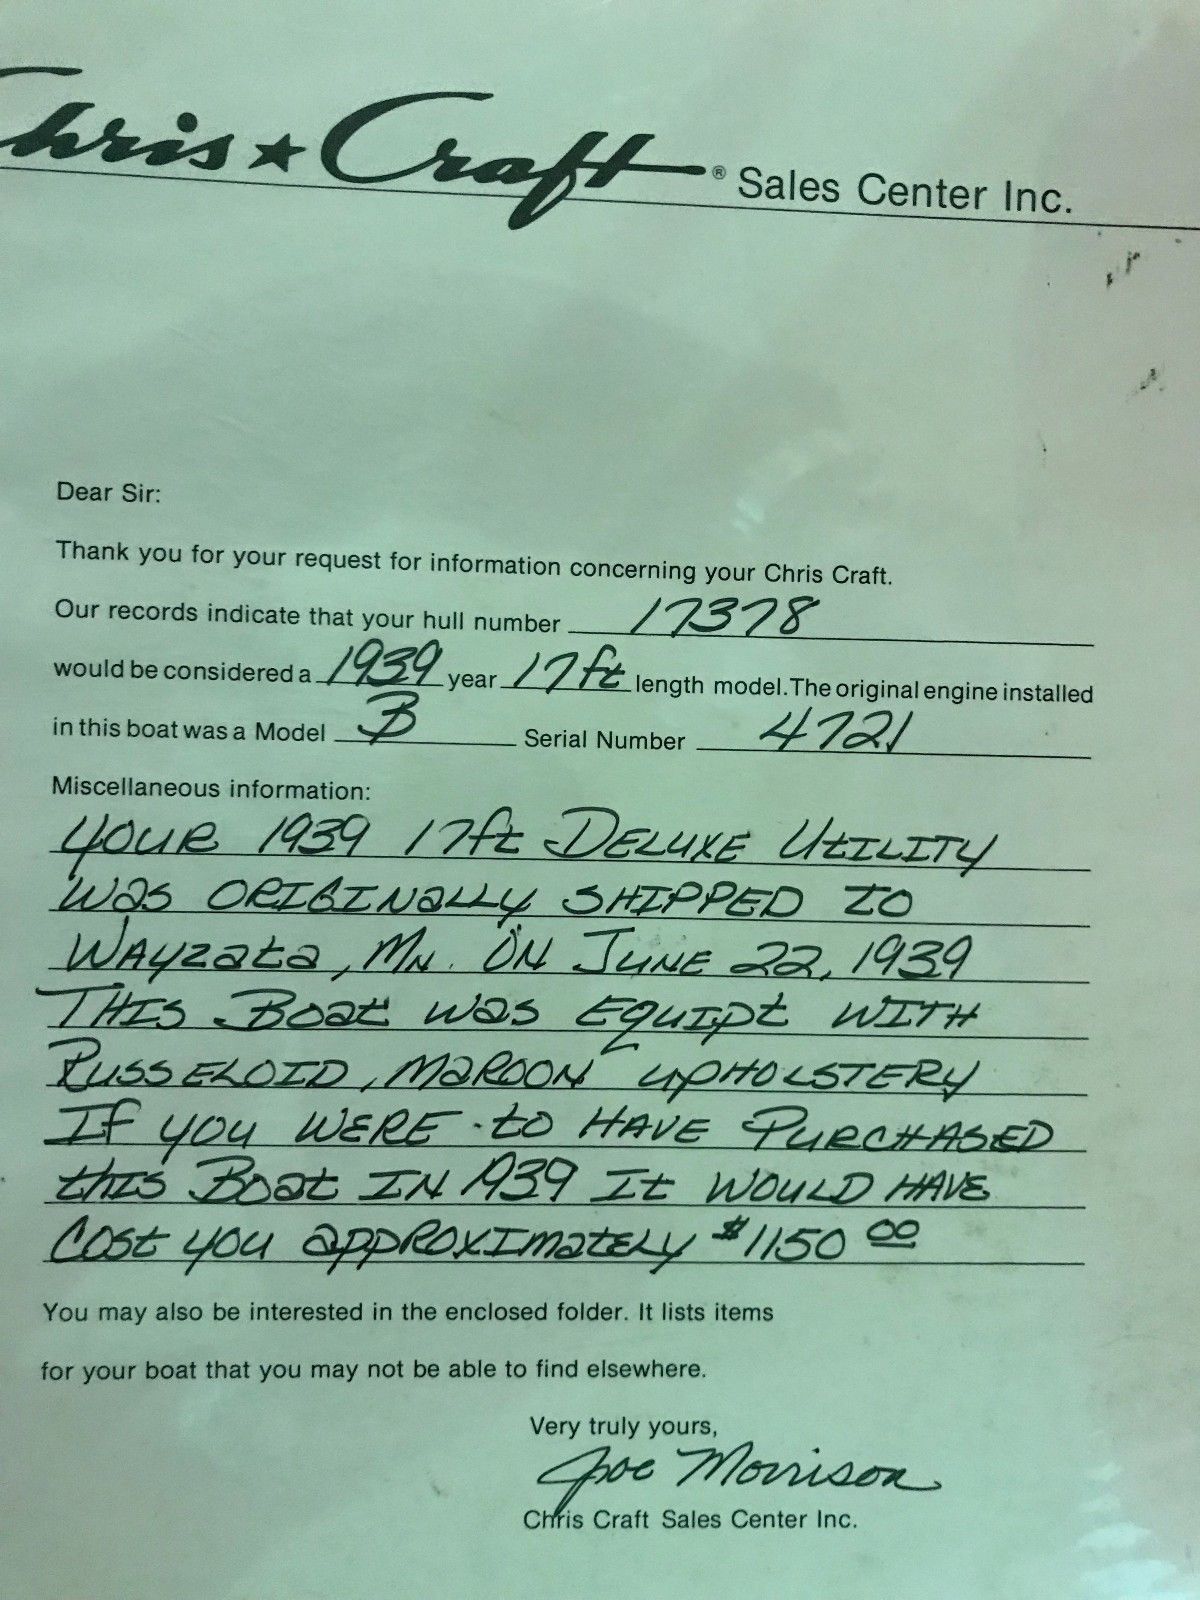 Chris★Craft® Sales Center Inc.
Dear Sir:
Thank you for your request for information concerning your Chris Craft.
Our records indicate that your hull number 17378
would be considered a 1939 year 17ft length model. The original engine installed
in this boat was a Model B Serial Number 4721
Miscellaneous information:
YOUR 1939 17ft DELUXE UtILITY
WaS ORIGINaLLY SHIPPED tO
WAYZata, MN. ON JUNE 22, 1939
THIS Boat was EQUIPt WITH
RUSSELOID, MAROON UPHOLSTERY
If YOU WERE to HAVE PURCHASED
this Boat IN 1939 It WOULD HAVE
Cost YOU APPROXImatELY $1150 00
You may also be interested in the enclosed folder. It lists items
for your boat that you may not be able to find elsewhere.
Very truly yours,
Joe Morrison
Chris Craft Sales Center Inc.